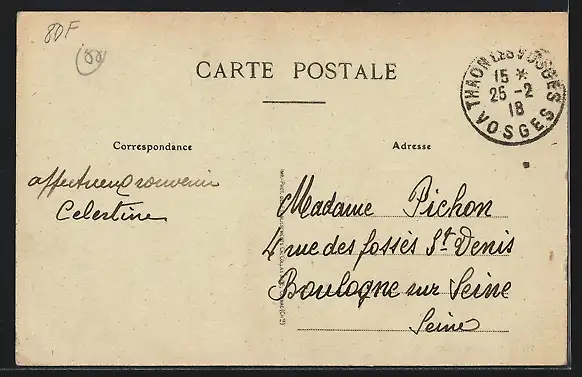 80F
88
CARTE POSTALE
THAON LES VOSGES
15 *
25 -2
18
VOSGES
Correspondance
Adresse
affectueux souvenir
Celestine
Madame Pichon
4 rue des fossés St Denis
Boulogne sur Seine
Seine